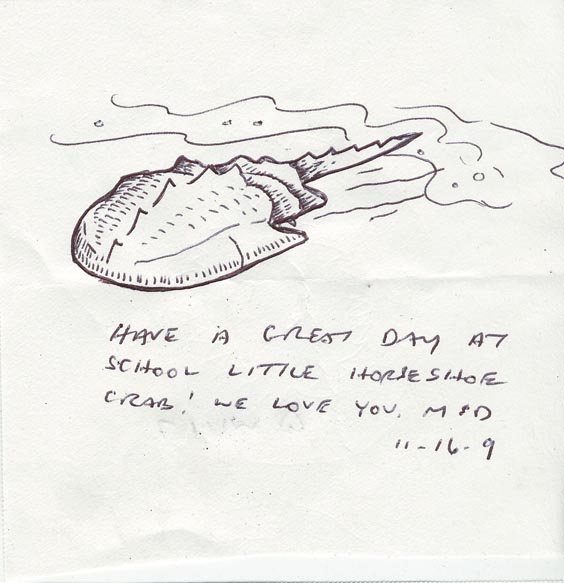 HAVE A GREAT DAY AT
SCHOOL LITTLE HORSESHOE
CRAB! WE LOVE YOU. M & D
11-16-9